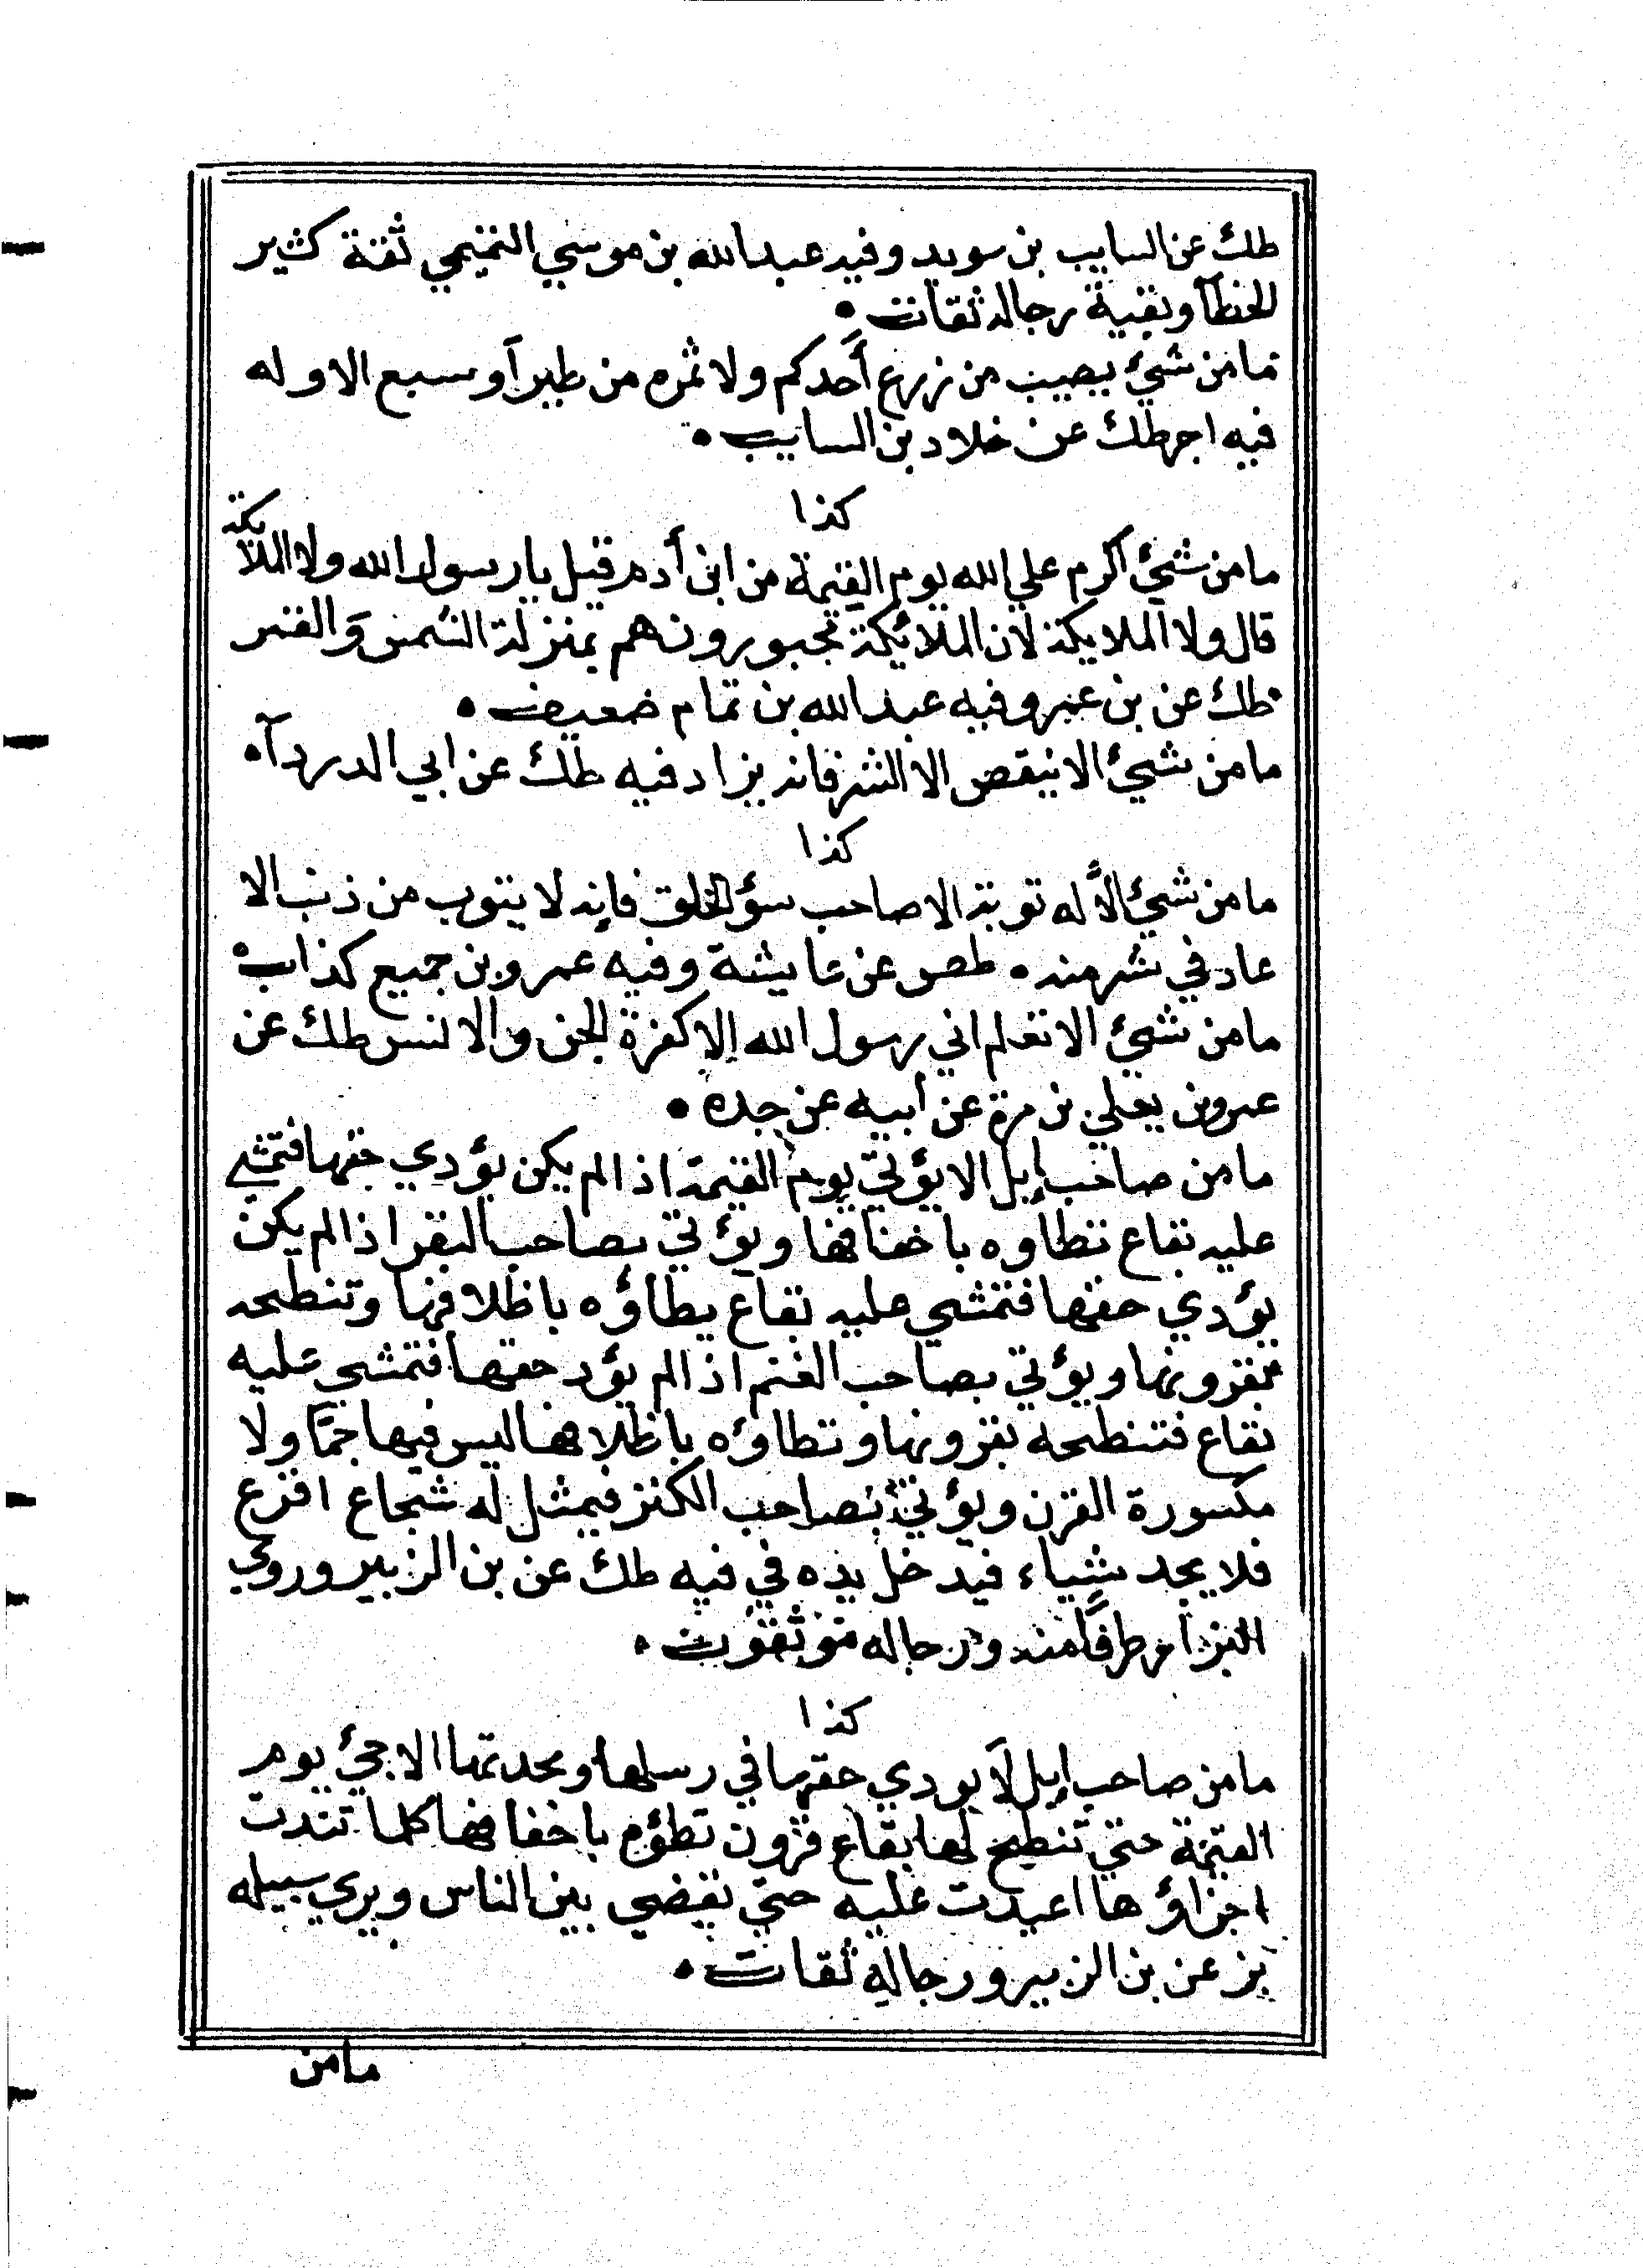 طلك عن السايب بن سويد وفيه عبد الله بن موسي التميمي ثقة كثير
الخطأ وبقية رجاله ثقات •
ما من شيئ يصيب من زرع أحدكم ولا ثمره من طير أو سبع الا وله
فيه اجر طلك عن خلاد بن السايب •
كذا
ما من شيئ أكرم علي الله يوم القيمة من ابن أدم قيل يا رسول الله ولا الملآيكة
قال ولا الملايكة لان الملائكة مجبورون هم بمنزلة الشمس والقمر
طلك عن بن عمرو فيه عبد الله بن تمام ضعيف •
ما من شيئ الا ينقص الا الشر فانه يزاد فيه طلك عن ابي الدردآء
كذا
ما من شيئ الأ له توبة الا صاحب سؤ الخلق فإنه لا يتوب من ذنب الا
عاد في شر منه • طص عن عايشة وفيه عمرو بن جميع كذاب
ما من شيئ الا تعلم اني رسول الله إلا كفرة الجن والانس طلك عن
عمرو بن يعلي بن مرة عن أبيه عن جده •
ما من صاحب إبل الا يؤتي يوم القيمة اذا لم يكن يؤدي حقها فتمشي
عليه بقاع تطاوه باخفافها ويؤتي بصاحب البقر اذا لم يكن
يؤدي حقها فتمشي عليه بقاع يطأؤه باظلافها وتنطحه
بقرونها ويؤتي بصاحب الغنم اذا لم يؤد حقها فتمشي عليه
بقاع فتنطحه بقرونها وتطاؤه باظلافها ليس فيها جمّا ولا
مكسورة القرن ويؤتي بصاحب الكنز فيمثل له شجاع اقرع
فلا يجد شياء فيدخل يده في فيه طلك عن بن الزبير وروي
البزار طرفًا منه ورجاله موثقون •
كذا
ما من صاحب إبل لا يودي حقها في رسلها ونجدتها الا جيئ يوم
القيمة حتي تنطح لها بقاع قرون تطؤه باخفافها كلما تندت
اجزاؤها اعيدت عليه حتي يقضي بين الناس ويري سبيله
بز عن بن الزبير ورجاله ثقات •
ما من